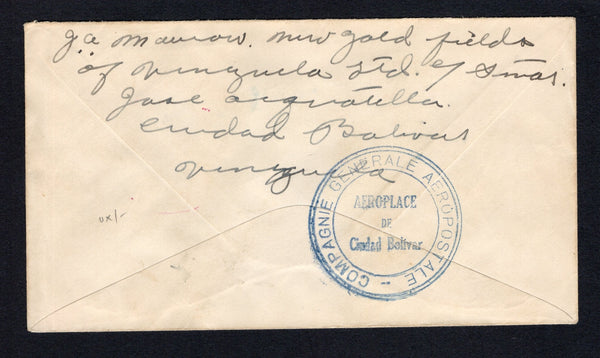 J.A. Marrow. New gold fields
of Venezuela Ltd. c/ Sñres.
Jose Acquatella.
Ciudad Bolivar
Venezuela
COMPAGNIE GENERALE AEROPOSTALE
AEROPLACE
DE
Ciudad Bolivar